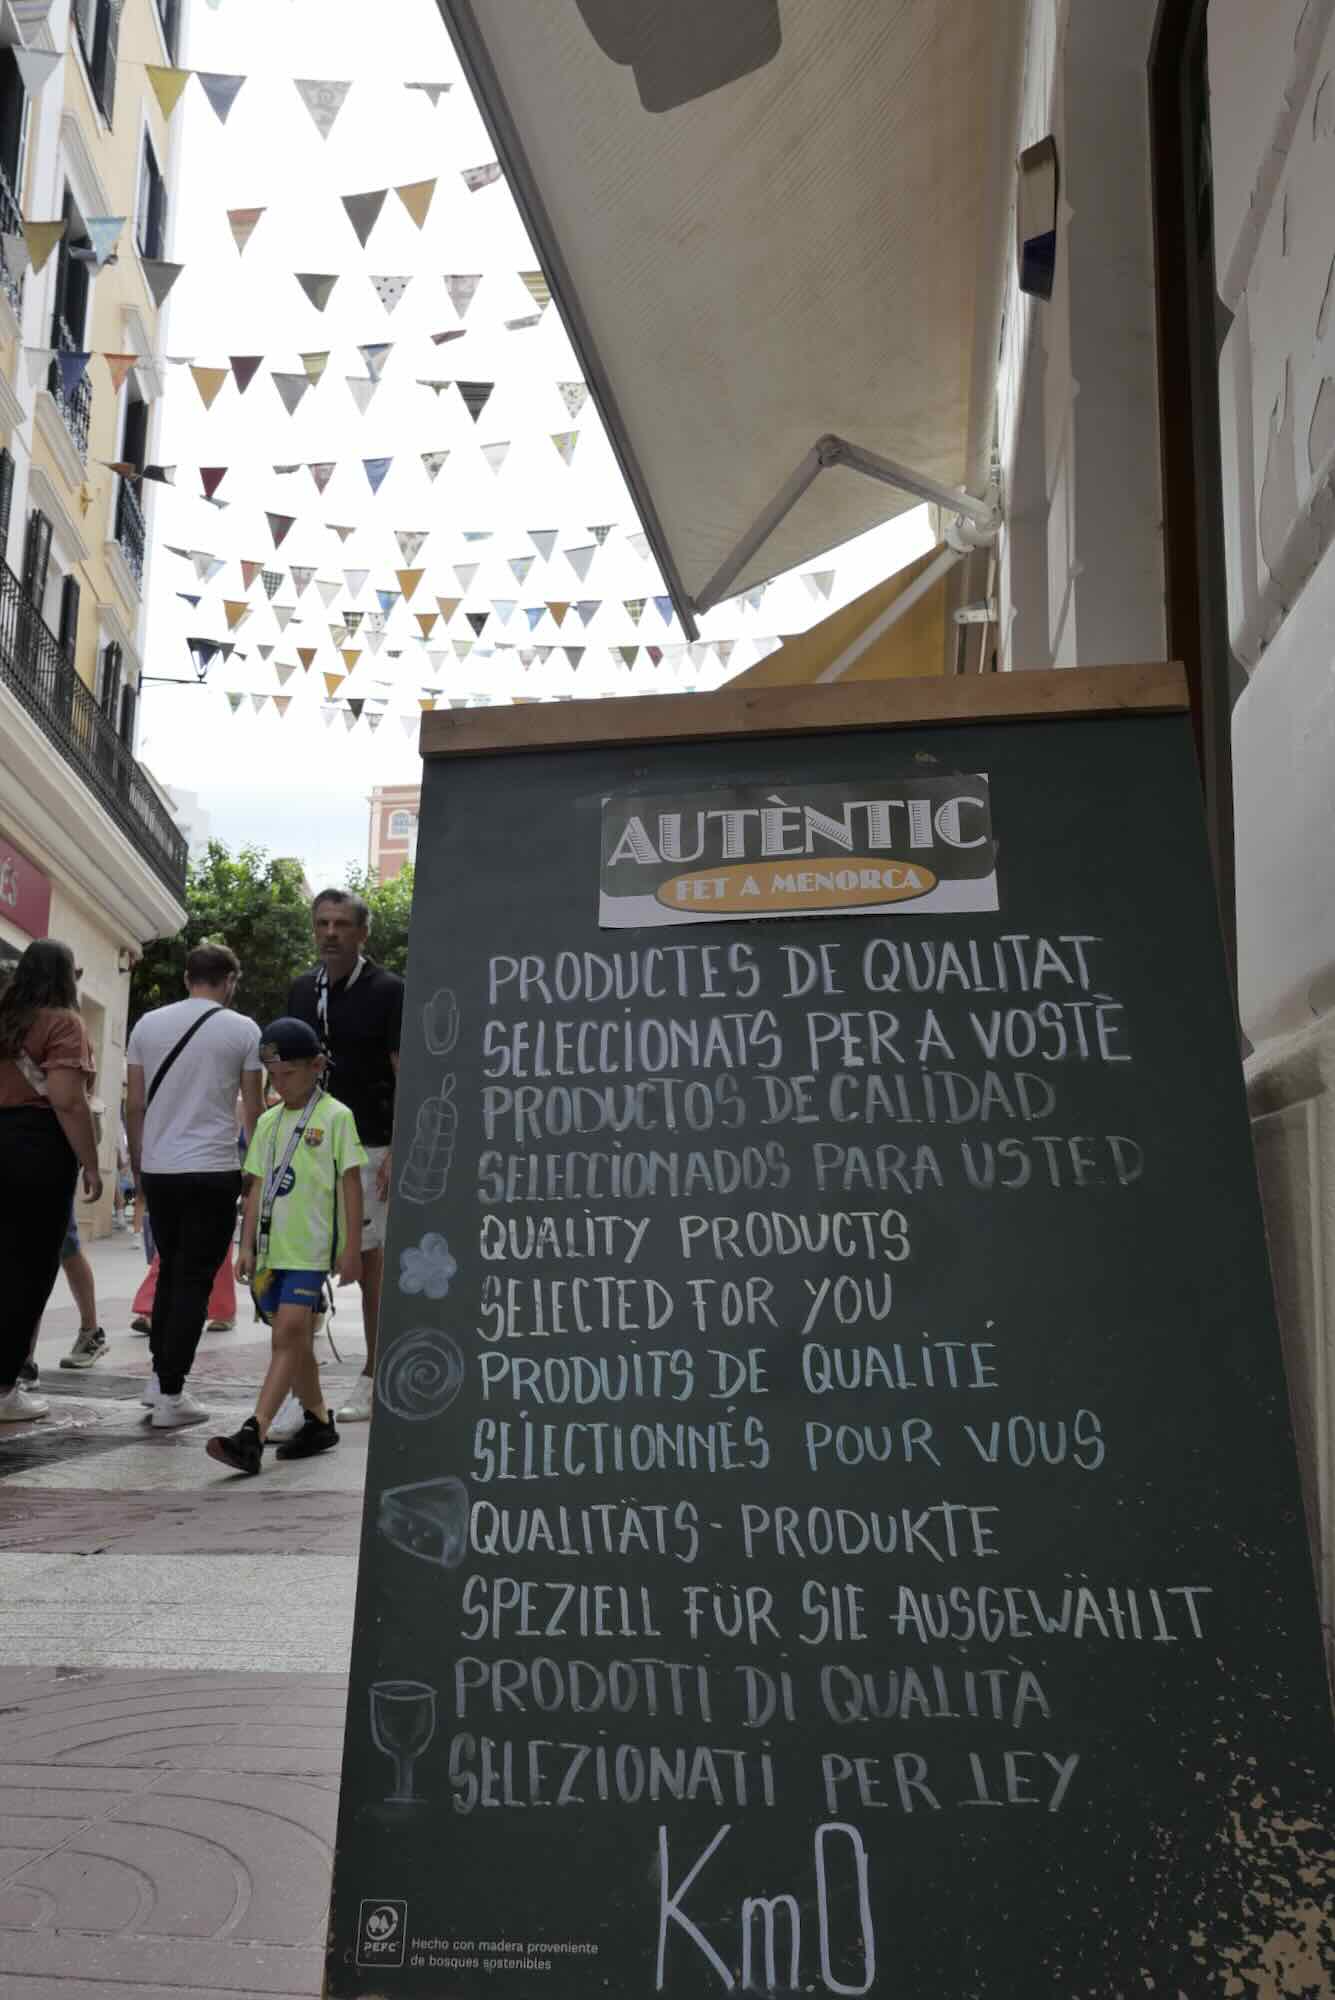 AUTÈNTIC
FET A MENORCA
PRODUCTES DE QUALITAT
SELECCIONATS PER A VOSTÈ
PRODUCTOS DE CALIDAD
SELECCIONADOS PARA USTED
QUALITY PRODUCTS
SELECTED FOR YOU
PRODUITS DE QUALITÉ
SÉLECTIONNÉS POUR VOUS
QUALITÄTS-PRODUKTE
SPEZIELL FÜR SIE AUSGEWÄHLT
PRODOTTI DI QUALITÀ
SELEZIONATI PER LEY
Km.0
PEFC
Hecho con madera proveniente
de bosques sostenibles